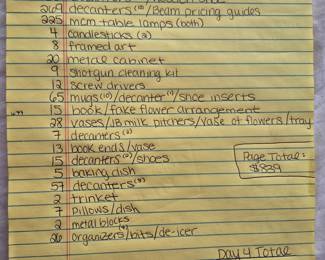 269 decanters (10) / Beam pricing guides
225 mcm table lamps (both)
4 candlesticks (2)
8 framed art
20 metal cabinet
9 shotgun cleaning kit
12 screw drivers
65 mugs (10) / decanter (1) / shoe inserts
15 book / fake flower arrangement
28 vases / IB milk pitchers / vase of flowers / tray
7 decanters (2)
13 book ends / vase
15 decanters (2) / shoes
5 baking dish
Page Total:
$839
57 decanters (9)
2 trinket
7 pillows / dish
2 metal blocks
26 organizers (4) / bits / de-icer
Day 4 Total